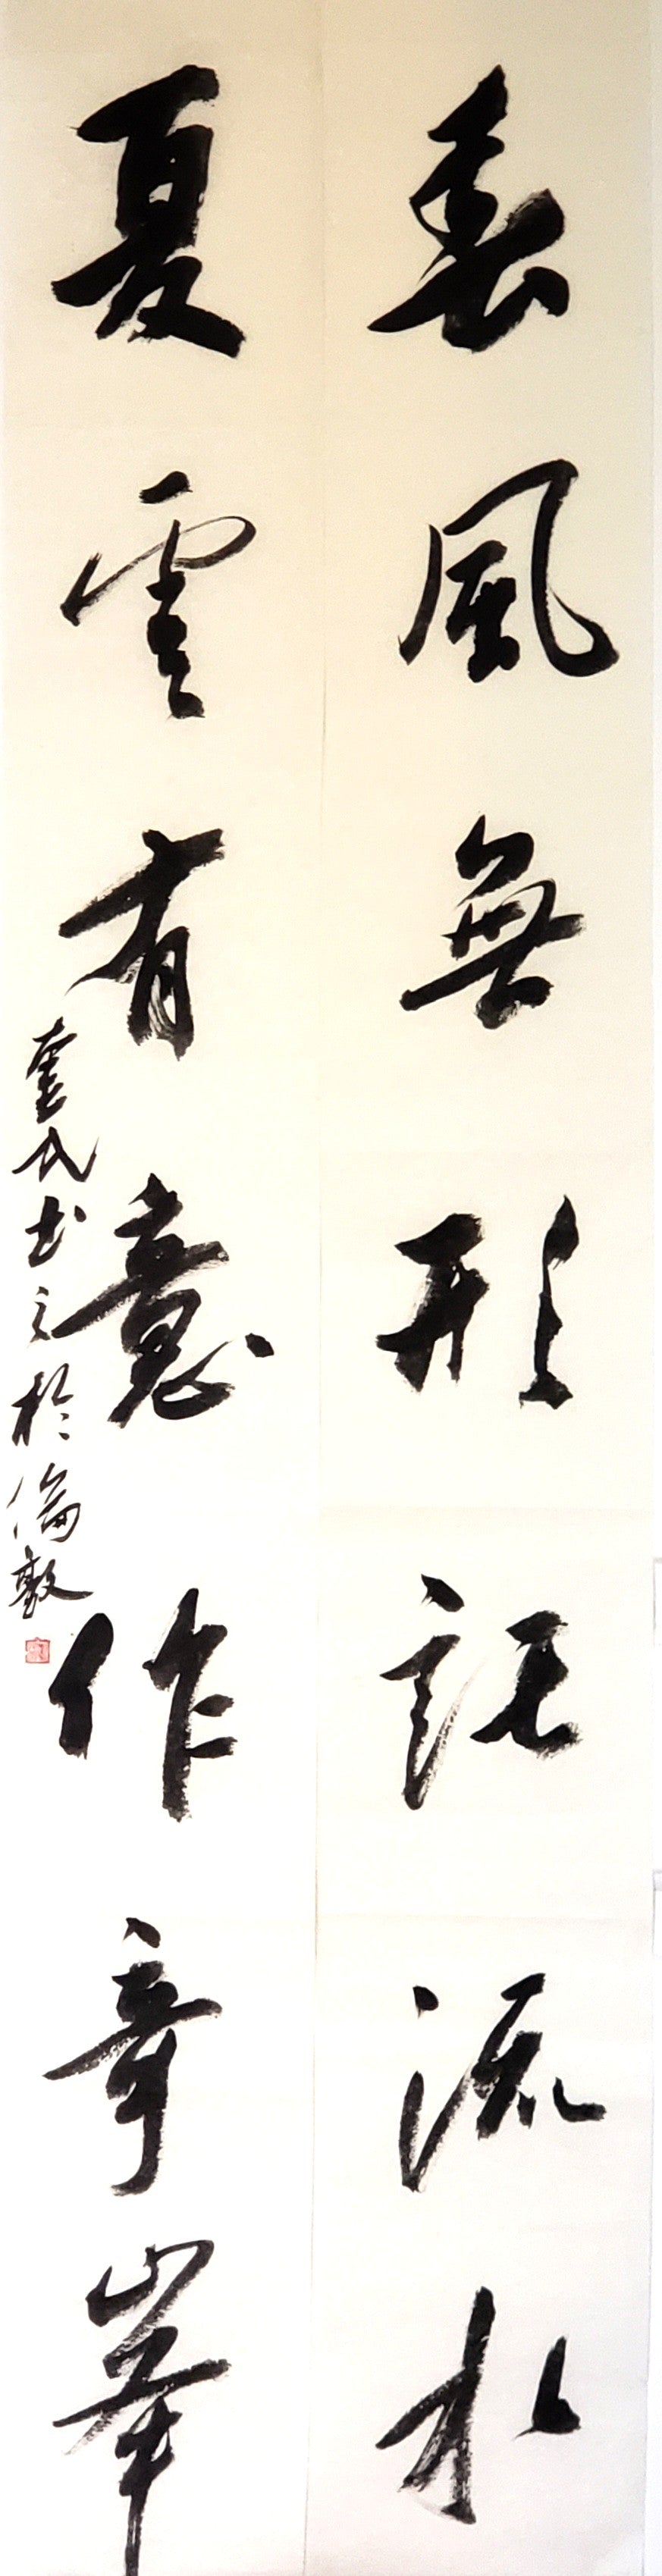 春風無形託流水
夏雲有意作奇峯
書之於倫敦